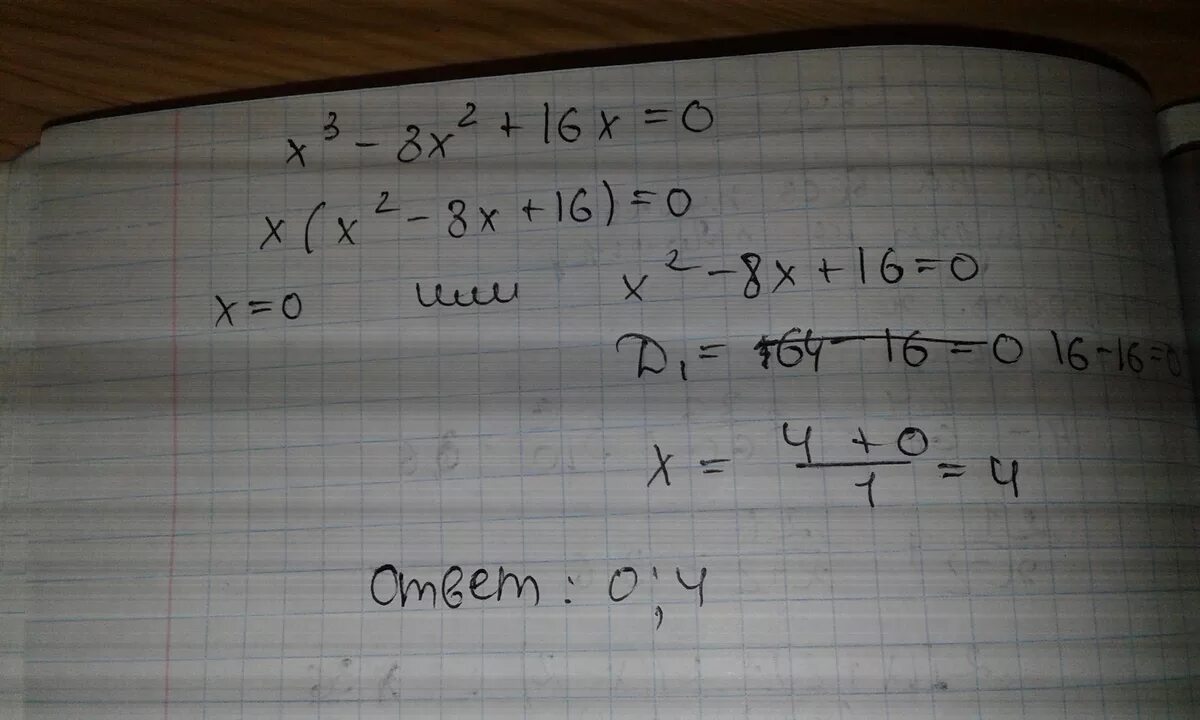 x³ - 8x² + 16x = 0
x(x² - 8x + 16) = 0
x = 0 или x² - 8x + 16 = 0
D₁ = ~~164 - 16 = 0~~ 16 - 16 = 0
x = (4 + 0)/1 = 4
Ответ: 0; 4